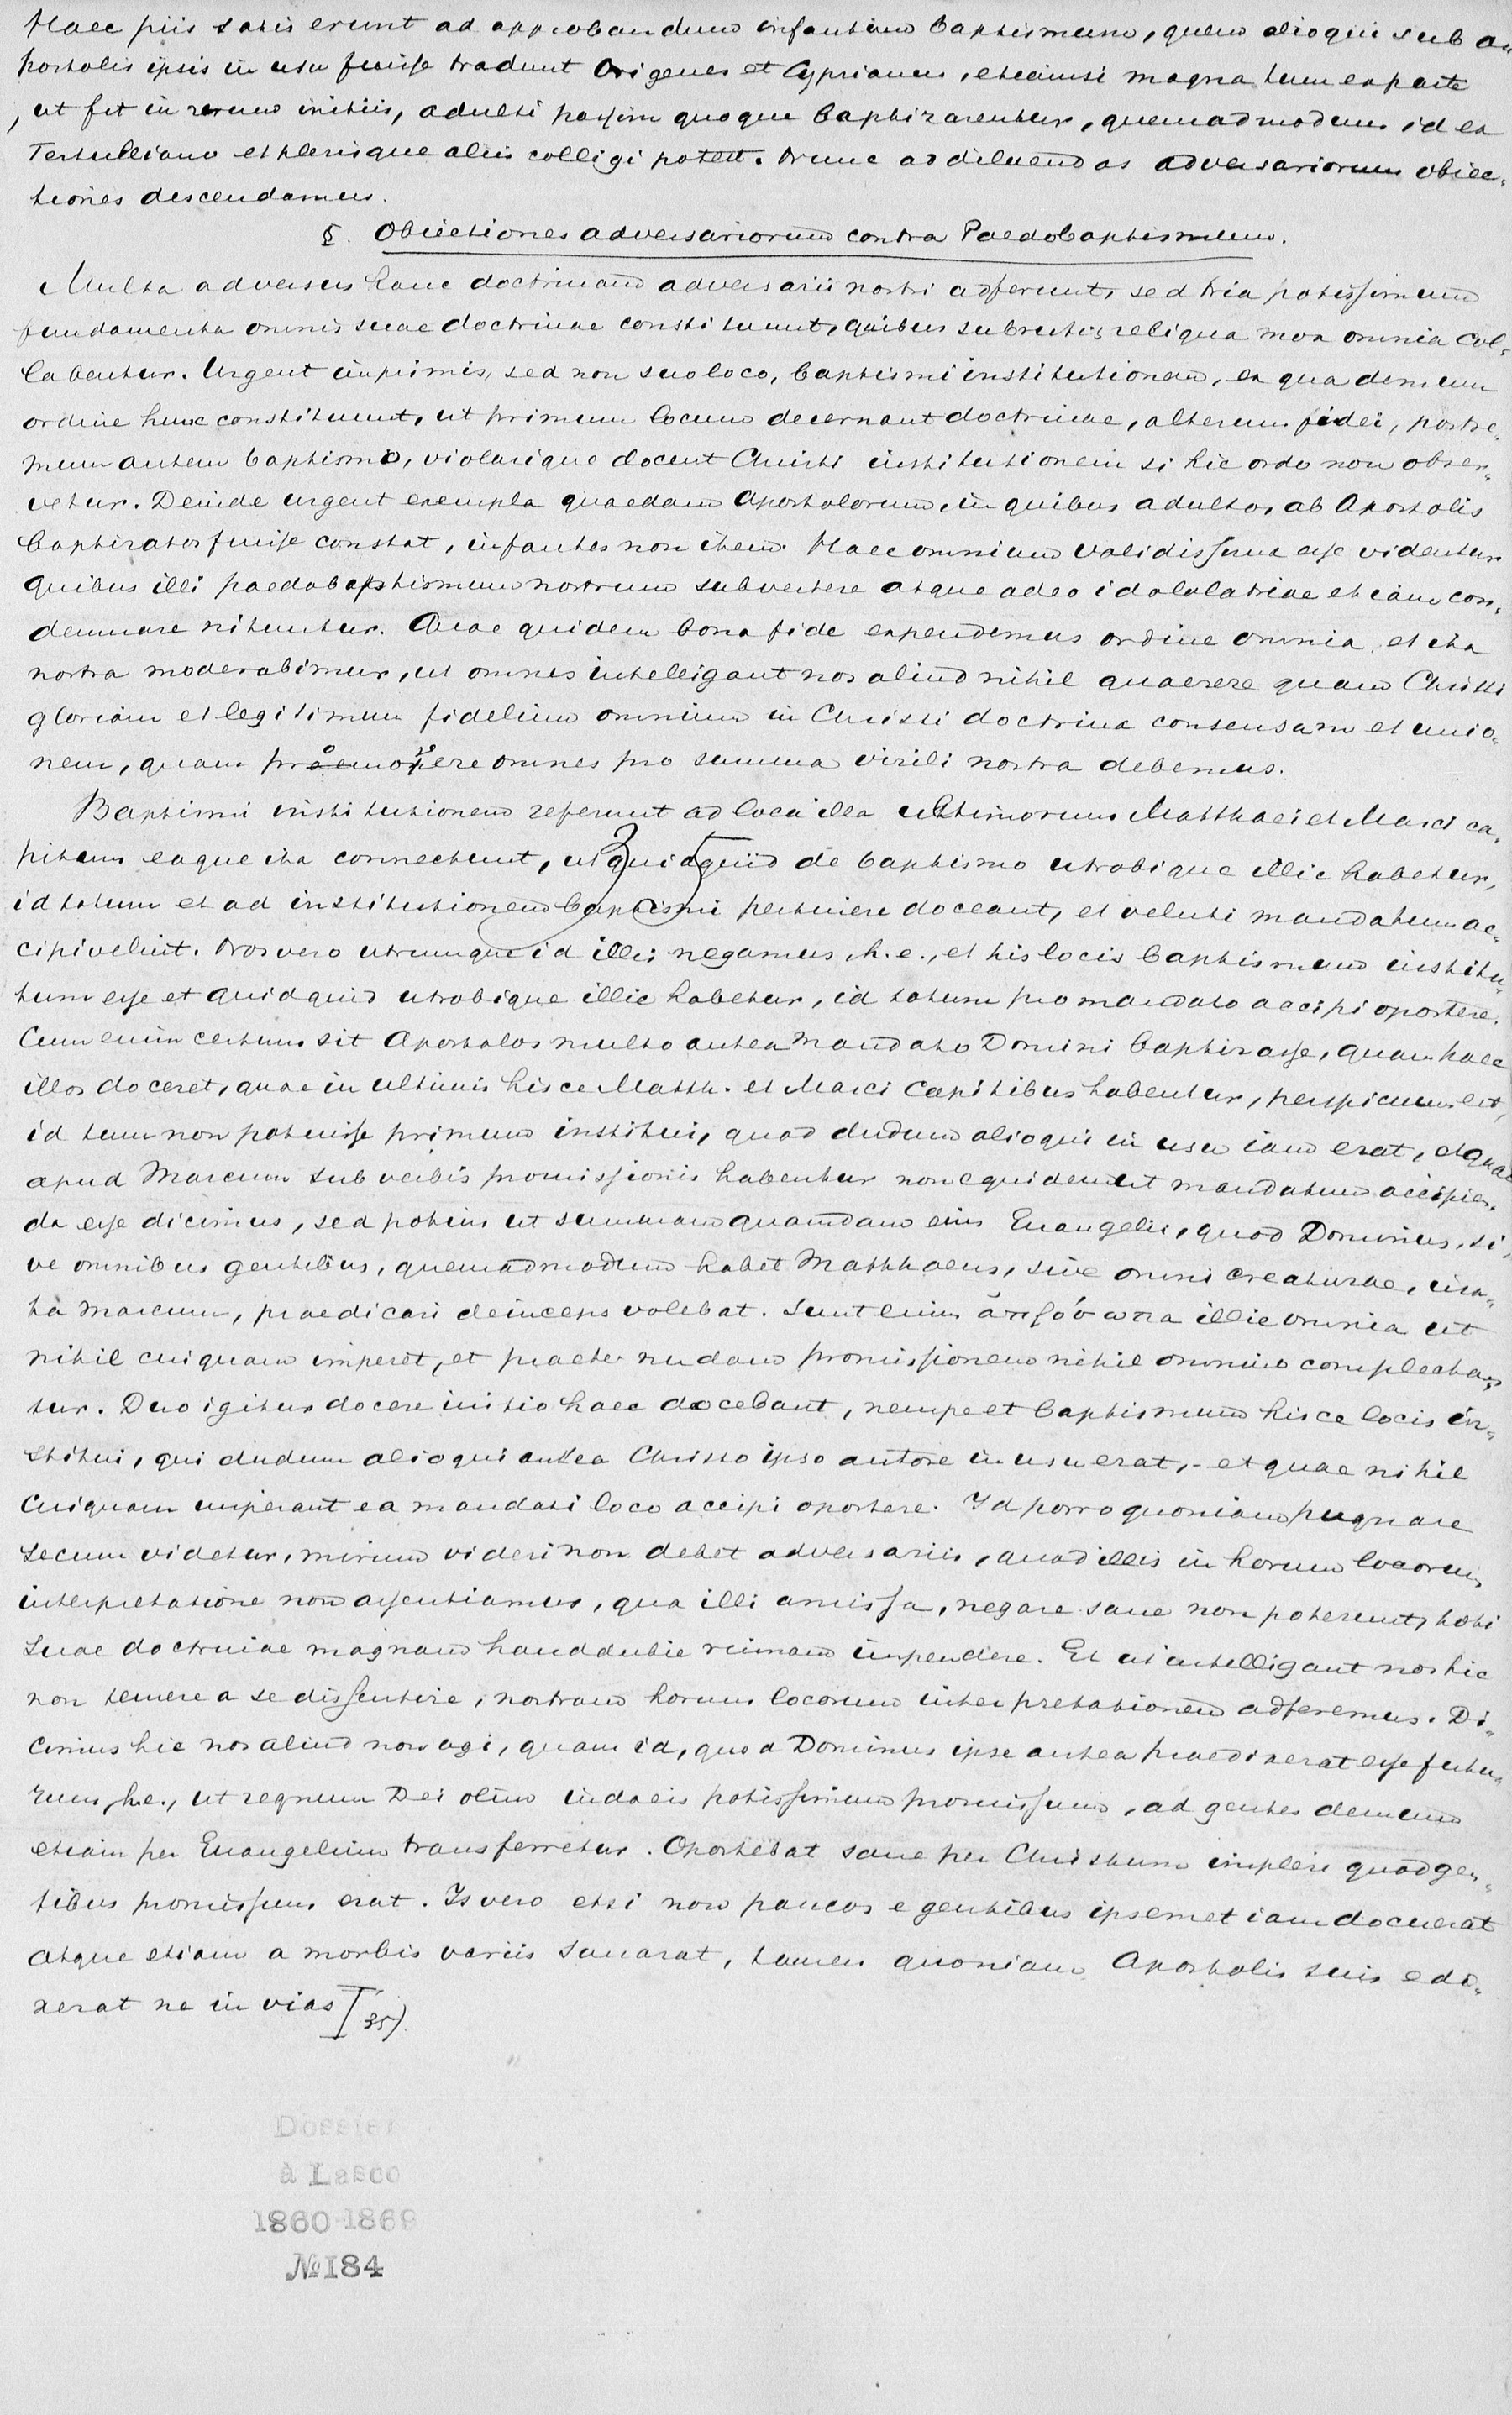 Haec piis satis erunt ad approbandum infantium baptismum, quem alioqui sub a-
postolis ipsis in usu fuisse tradunt Origenes et Cyprianus, etiamsi magna tum ex parte
, ut fit in rerum initiis, adulti passim quoque baptizarentur, quemadmodum id ex
Tertulliano et plerisque aliis colligi potest. Nunc ad diluendas adversariorum obiec-
tiones descendamus.
§. Obiectiones adversariorum contra Paedobaptismum.
Multa adversus hanc doctrinam adversarii nostri adferunt, sed tria potissimum
fundamenta omnis suae doctrinae constituunt, quibus subrutis reliqua mox omnia col-
labentur. Urgent inprimis, sed non suo loco, baptismi institutionem, ex qua demum
ordine hunc constituunt, ut primum locum decernant doctrinae, alterum fidei, postre-
mum autem baptismo, violarique docent Christi institutionem si hic ordo non obser-
vetur. Deinde urgent exempla quaedam Apostolorum, in quibus adultos, ab Apostolis
baptizatos fuisse constat, infantes non item. Haec omnium validissima esse videntur
quibus illi paedobaptismum nostrum subvertere atque adeo idololatriae etiam con-
demnare nituntur. Quae quidem bona fide expendemus ordine omnia, et ita
nostra moderabimur, ut omnes intelligant nos aliud nihil quaerere quam Christi
gloriam et legitimum fidelium omnium in Christi doctrina consensum et unio-
nem, quam promovere omnes pro summa virili nostra debemus.
Baptismi institutionem referunt ad loca illa ultimorum Matthaei et Marci ca-
pitum eaque ita connectunt, ut quidquid de baptismo utrobique illic habetur,
35
id totum et ad institutionem baptismi pertinere doceant, et veluti mandatum ac-
cipi velint. Nos vero utrumque id illis negamus, h. e., et his locis baptismum institu-
tum esse et quidquid utrobique illic habetur, id totum pro mandato accipi oportere.
Cum enim certum sit Apostolos multo antea mandato Domini baptizasse, quam haec
illos doceret, quae in ultimis hisce Matth. et Marci capitibus habentur, perspicuum est,
id tum non potuisse primum institui, quod dudum alioqui in usu iam erat, et quae
apud Marcum sub verbis promissionis habentur non equidem ut mandatum accipien-
da esse dicimus, sed potius ut summam quamdam eius Euangelii, quod Dominus, si-
ve omnibus gentibus, quemadmodum habet Matthaeus, sive omni creaturae, iux-
ta Marcum, praedicari deinceps volebat. Sunt enim illic omnia ut
nihil cuiquam imperet, et praeter nudam promissionem nihil omnino complectan-
tur. Duo igitur docere initio haec docebant, nempe et baptismum hisce locis in-
stitui, qui dudum alioqui antea Christo ipso autore in usu erat, - et quae nihil
cuiquam imperant ea mandati loco accipi oportere. Id porro quoniam pugnare
secum videtur, mirum videri non debet adversariis, quod illis in horum locorum
interpretatione non assentiamur, qua illi amissa, negare sane non poterunt, toti
suae doctrinae magnam haud dubie ruinam inpendere. Et ut intelligant nos hic
non temere a se dissentire, nostram horum locorum interpretationem adferemus. Di-
cimus hic nos aliud non agi, quam id, quod Dominus ipse antea praedixerat esse futu-
rum, h.e., ut regnum Dei olim iudaeis potissimum promissum, ad gentes demum
etiam per Euangelium transferretur. Oportebat sane per Christum impleri quod gen-
tibus promissum erat. Is vero etsi non paucos e gentibus ipsemet iam docuerat
atque etiam a morbis variis sanarat, tamen quoniam Apostolis suis edi-
xerat ne in vias [35)
Dossier
à Lasco
1860-1869
№184